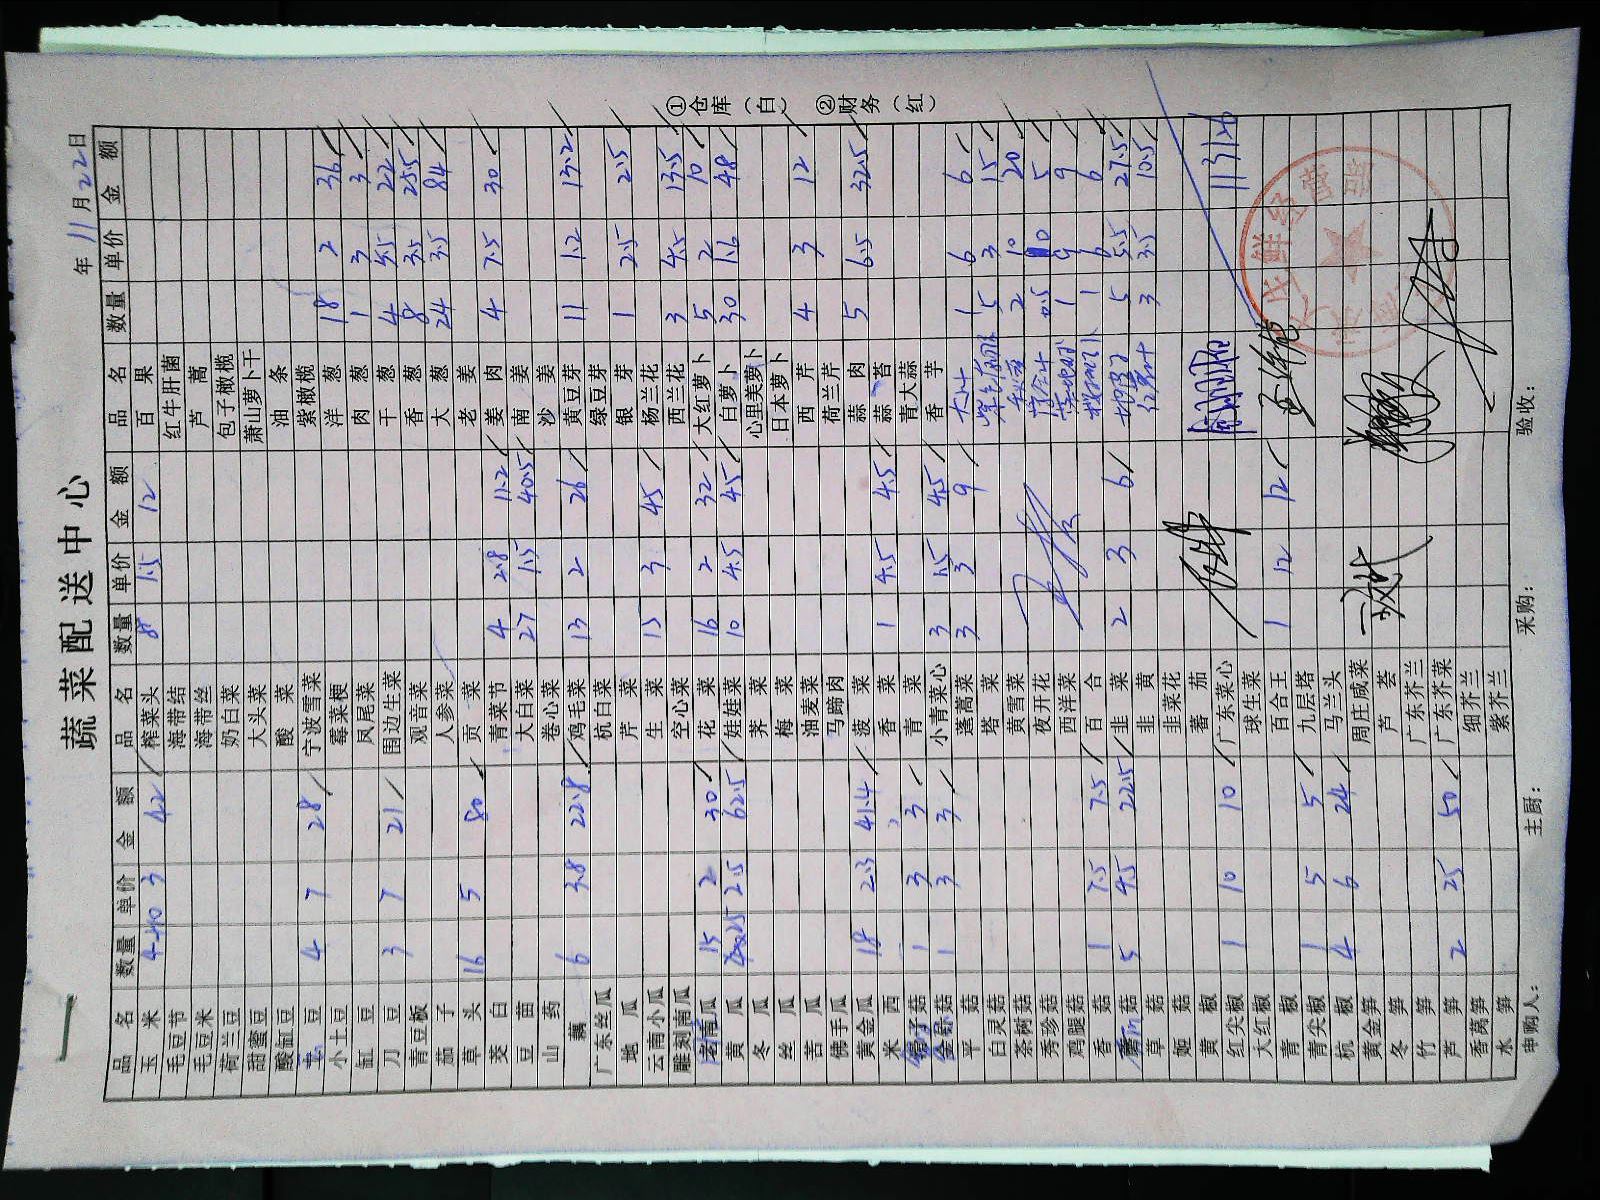 蔬菜配送中心
年 11 月 22 日
品名 数量 单价 金额 品名 数量 单价 金额 品名 数量 单价 金额
玉米 3 42 榨菜头 8 1.5 12 百果
毛豆节 海带结 红牛肝菌
毛豆米 海带丝 芦蒿
荷兰豆 奶白菜 包子橄榄
甜蜜豆 大头菜 萧山萝卜干
酸缸豆 酸菜 油条
豆 4 7 28 宁波雪菜 紫橄榄
小土豆 霉菜梗 洋葱 18 2 36
缸豆 凤尾菜 肉葱 1 3 3
刀豆 3 7 21 围边生菜 干葱 4 5.5 22
青豆板 观音菜 香葱 8 3.5 25.5
茄子 人参菜 大葱 24 3.5 84
草头 16 5 80 贡菜 老姜
茭白 青菜节 4 2.8 11.2 姜肉 4 7.5 30
豆苗 大白菜 27 1.5 40.5 南姜
山药 卷心菜 沙姜
藕 6 3.8 22.8 鸡毛菜 13 2 26 黄豆芽 11 1.2 13.2
广东丝瓜 杭白菜 绿豆芽
地瓜 芹菜 银芽 1 2.5 2.5
云南小瓜 生菜 15 3 45 杨兰花
雕刻南瓜 空心菜 西兰花 3 4.5 13.5
老南瓜 15 2 30 花菜 16 2 32 大红萝卜 5 2 10
黄瓜 25 2.5 62.5 娃娃菜 10 4.5 45 白萝卜 30 1.6 48
冬瓜 荠菜 心里美萝卜
丝瓜 梅菜 日本萝卜
苦瓜 油麦菜 西芹 4 3 12
佛手瓜 马蹄肉 荷兰芹
黄金瓜 18 2.3 41.4 菠菜 蒜肉 5 6.5 32.5
米西 香菜 1 4.5 4.5 蒜苔
子菇 1 3 3 青菜 青大蒜
菇 1 3 3 小青菜心 3 1.5 4.5 香芋
平菇 蓬蒿菜 3 3 9 大叶 1 6 6
白灵菇 塔菜 5 3 15
茶树菇 黄雪菜 2 10 20
秀珍菇 夜开花 0.5 10 5
鸡腿菇 西洋菜 1 9 9
香菇 1 7.5 7.5 百合 1 6 6
菇 5 4.5 22.5 韭菜 2 3 6 5 5.5 27.5
草菇 韭黄 3 3.5 10.5
姬菇 韭菜花
黄椒 蕃茄
红尖椒 1 10 10 广东菜心
大红椒 球生菜
青椒 百合王 1 12 12
青尖椒 1 5 5 九层塔
杭椒 4 6 24 马兰头
黄金笋 周庄咸菜
冬笋 芦荟
竹笋 广东芥兰
芦笋 2 25 50 广东芥菜
香莴笋 细芥兰
水笋 紫芥兰
申购人： 主厨： 采购： 验收：
①仓库（白） ②财务（红）